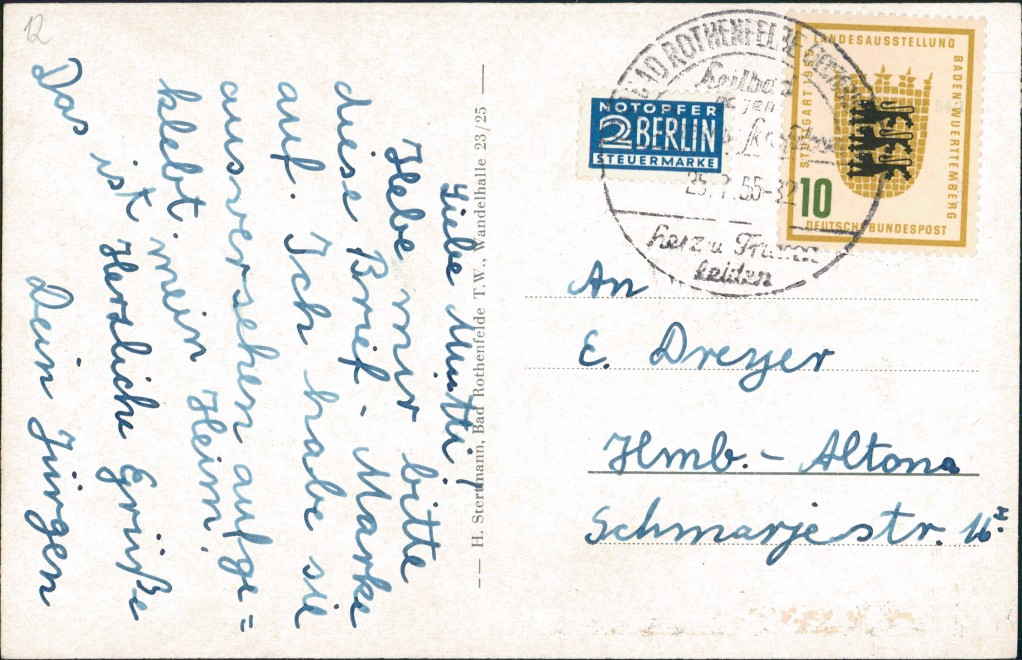 12
Liebe Mutti!
Hebe mir bitte
diese Brief-Marke
auf. Ich habe sie
aus versehen aufge=
klebt. mein Heim.
ist Herzliche Grüße
Das Dein Jürgen
— H. Stertmann, Bad Rothenfelde T.W., Wandelhalle 23/25 —
BAD ROTHENFELDE
Heilbad
gegen
Herz u. Frauen
leiden
NOTOPFER
2 BERLIN
STEUERMARKE
LANDESAUSSTELLUNG
BADEN-WUERTTEMBERG
STUTTGART 1955
10
DEUTSCHE BUNDESPOST
An
E. Dreyer
Hmb.- Altona
Schmarjestr.